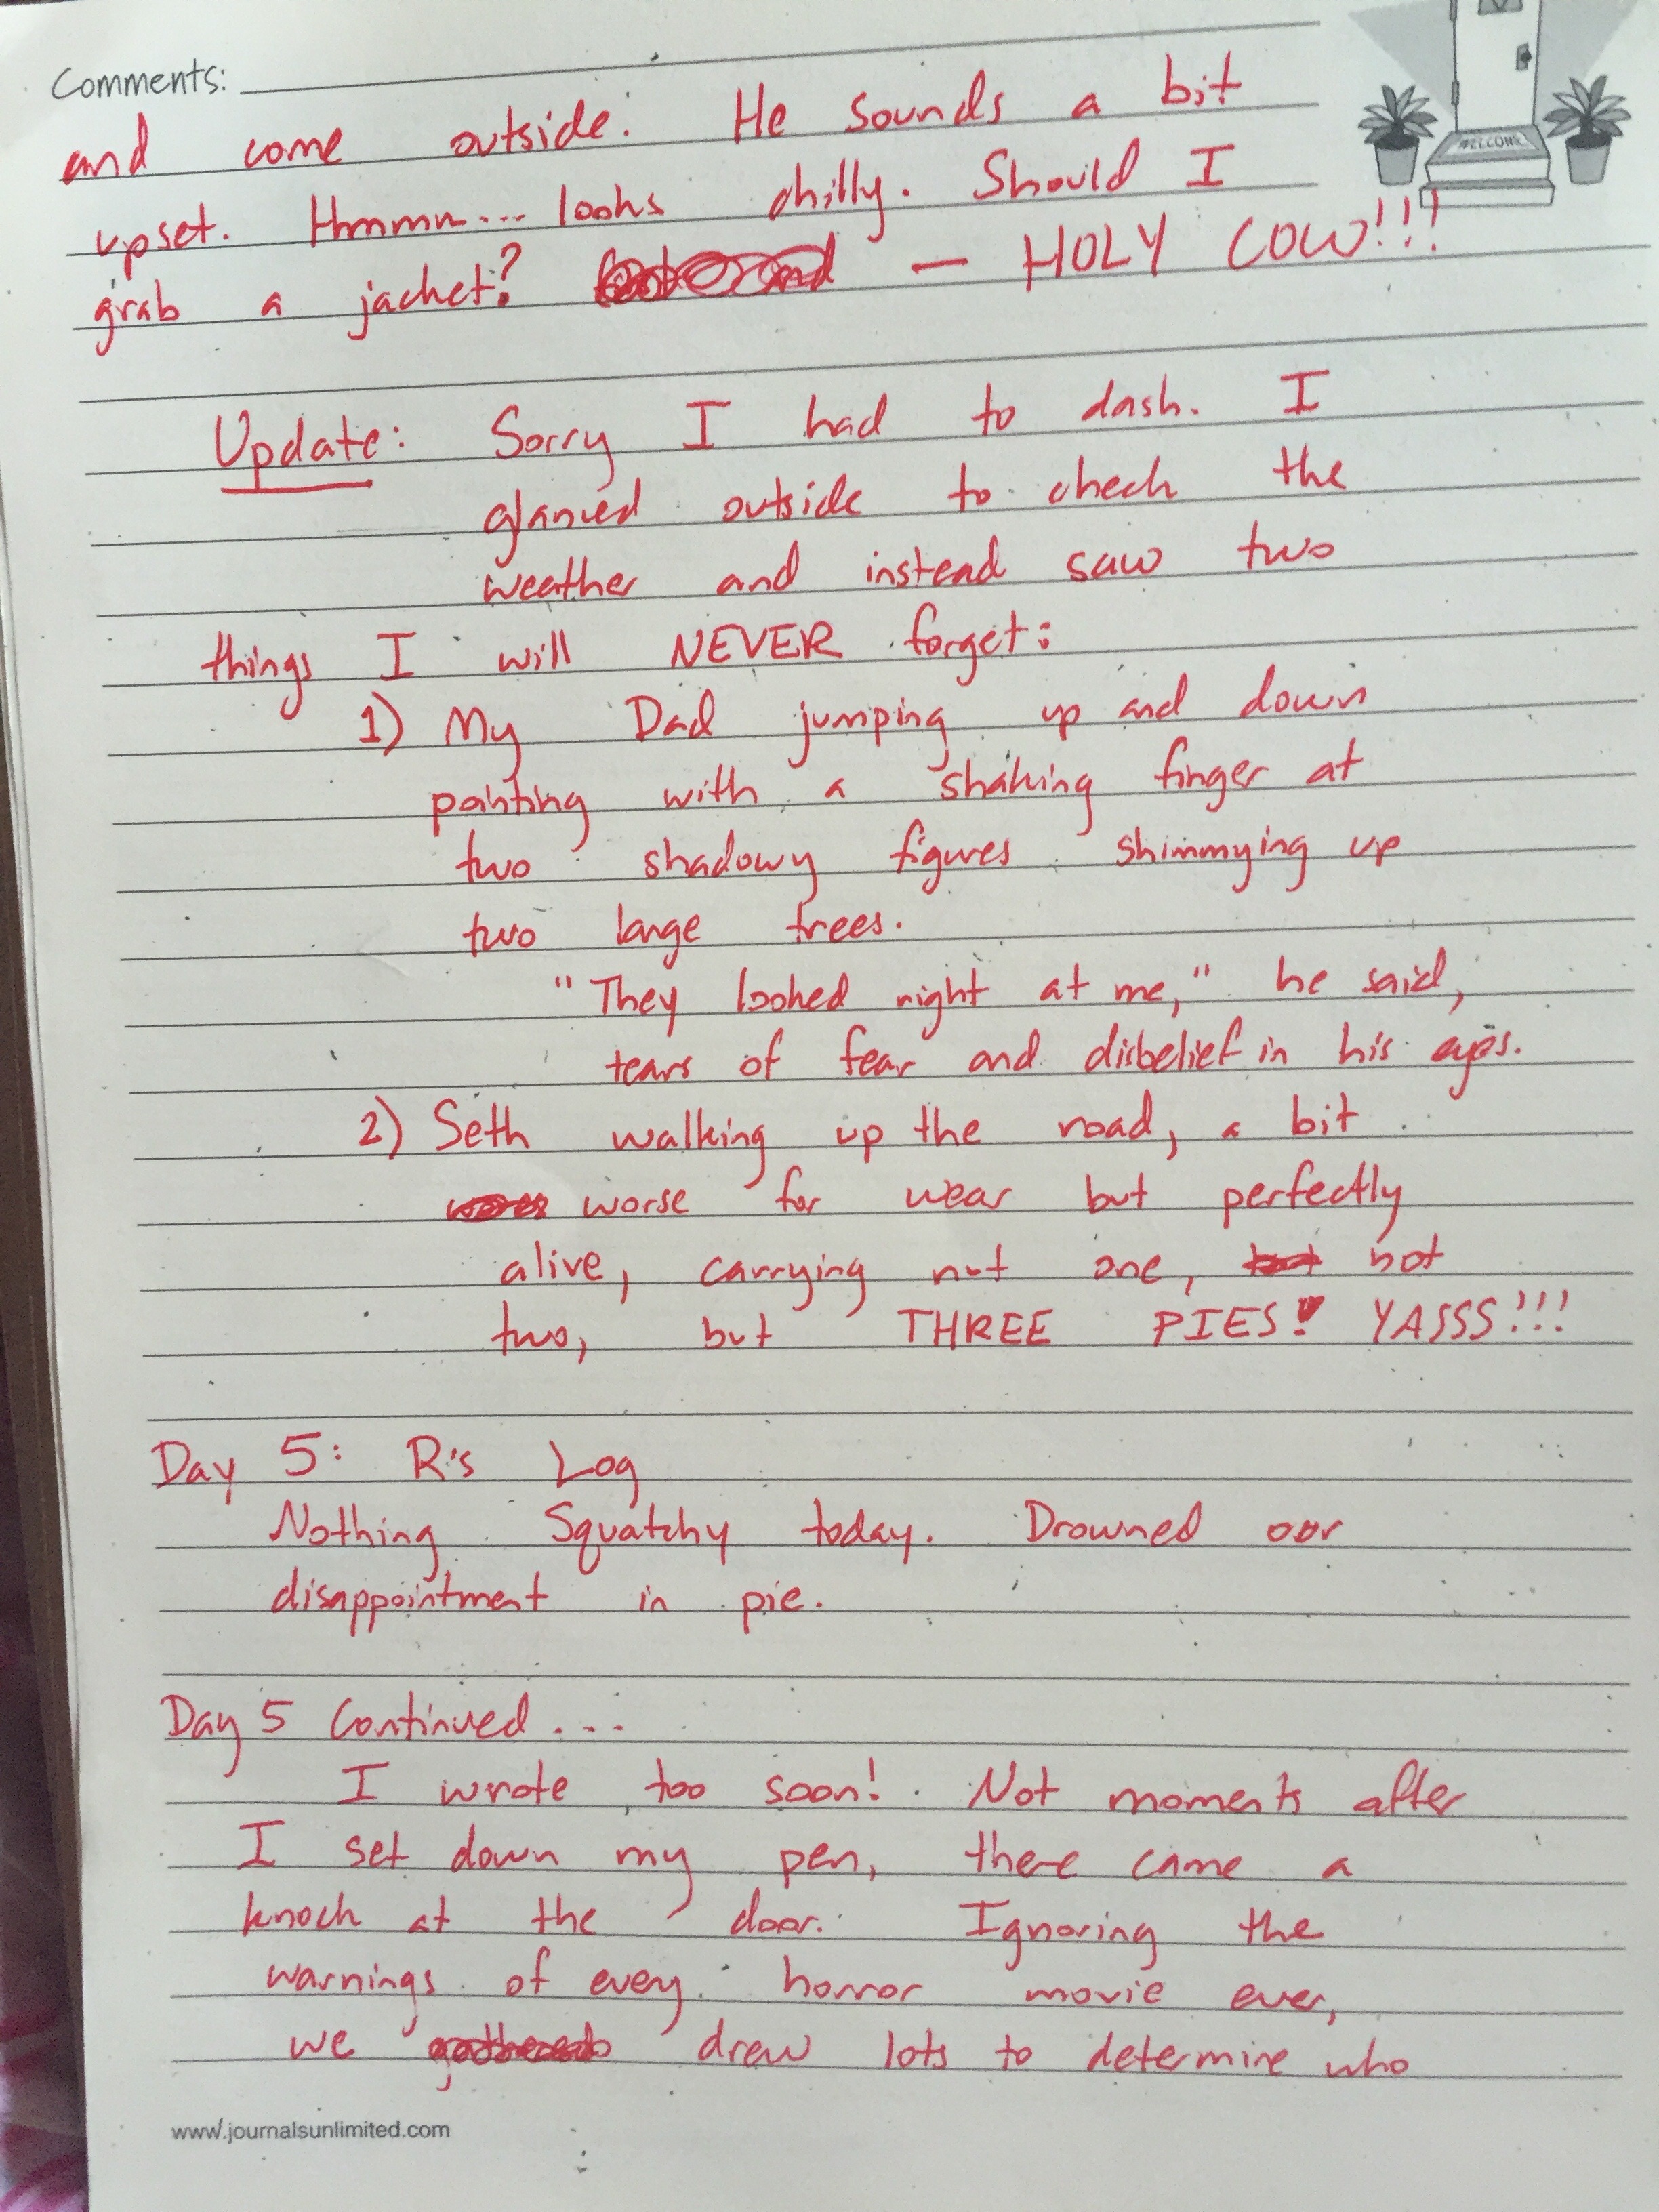 Comments:
WELCOME
and come outside. He sounds a bit
upset. Hmmmn... looks chilly. Should I
grab a jacket? — HOLY COW!!!
Update: Sorry I had to dash. I
glanced outside to check the
weather and instead saw two
things I will NEVER forget:
1) My Dad jumping up and down
pointing with a shaking finger at
two shadowy figures shimmying up
two large trees.
"They looked right at me," he said,
tears of fear and disbelief in his eyes.
2) Seth walking up the road, a bit
worse for wear but perfectly
alive, carrying not one, not
two, but THREE PIES! YASSS!!!
Day 5: R's Log
Nothing Squatchy today. Drowned our
disappointment in pie.
Day 5 Continued...
I wrote too soon! Not moments after
I set down my pen, there came a
knock at the door. Ignoring the
warnings of every horror movie ever,
we drew lots to determine who
www.journalsunlimited.com